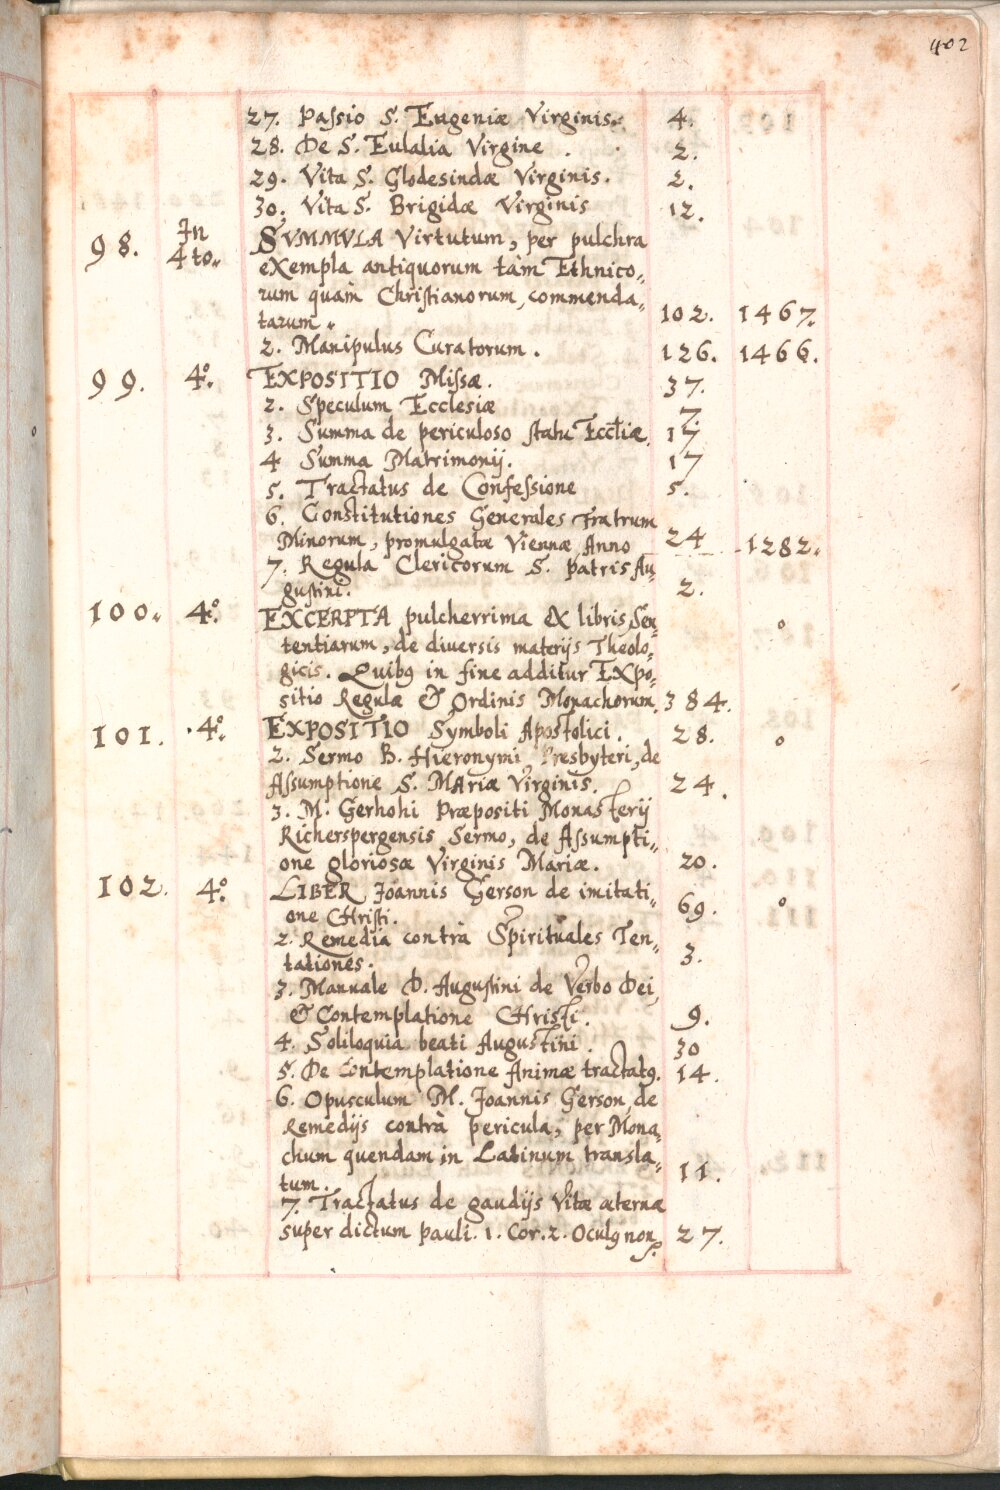 402
27. Passio S. Eugeniæ Virginis. 4.
28. De S. Eulalia Virgine . 2.
29. Vita S. Glodesindæ Virginis. 2.
30. Vita S. Brigidæ Virginis 12.
98. In 4to. SVMMVLA Virtutum, per pulchra
eXempla antiquorum tàm Ethnico„
rum quam Christianorum, commenda„
tarum. 102. 1467.
2. Manipulus Curatorum. 126. 1466.
99. 4º. EXPOSITIO Missæ. 37.
2. Speculum Ecclesiæ 7.
3. Summa de periculoso statu Eccliæ. 17
4 Summa Matrimonij. 17
5. Tractatus de Confessione 5.
6. Constitutiones Generales Fratrum
Minorum, promulgatæ Viennæ Anno 24 1282.
7. Regula Clericorum S. Patris Au„
gustini. 2.
100. 4º. EXCERPTA pulcherrima eX libris Sen„
tentiarum, de diversis materijs Theolo„
gicis. Quibq in fine additur EXpo„
sitio Regulæ & Ordinis Monachorum. 384. o
101. 4º. EXPOSITIO Symboli Apostolici. 28. o
2. Sermo B. Hieronymi Presbyteri, de
Assumptione S. MAriæ Virginis. 24.
3. M. Gerhohi Præpositi Monasterij
Richerspergensis Sermo, de Assumpti„
one gloriosæ Virginis Mariæ. 20.
102. 4º. LIBER Joannis Gerson de imitati„
one CHristi. 69. o
2. Remedia contrà Spirituales Ten„
tationes. 3.
3. Manuale D. Augustini de Verbo Dei,
& Contemplatione CHristi. 9.
4. Soliloquia beati Augustini. 30
5. De Contemplatione Animæ tractatq. 14.
6. Opusculum M. Joannis Gerson, de
Remedijs contrà pericula, per Mona„
chum quendam in Latinum transla„
tum. 11.
7. Tractatus de gaudijs Vitæ æternæ
super dictum Pauli. 1. Cor. 2. Oculq non 27.